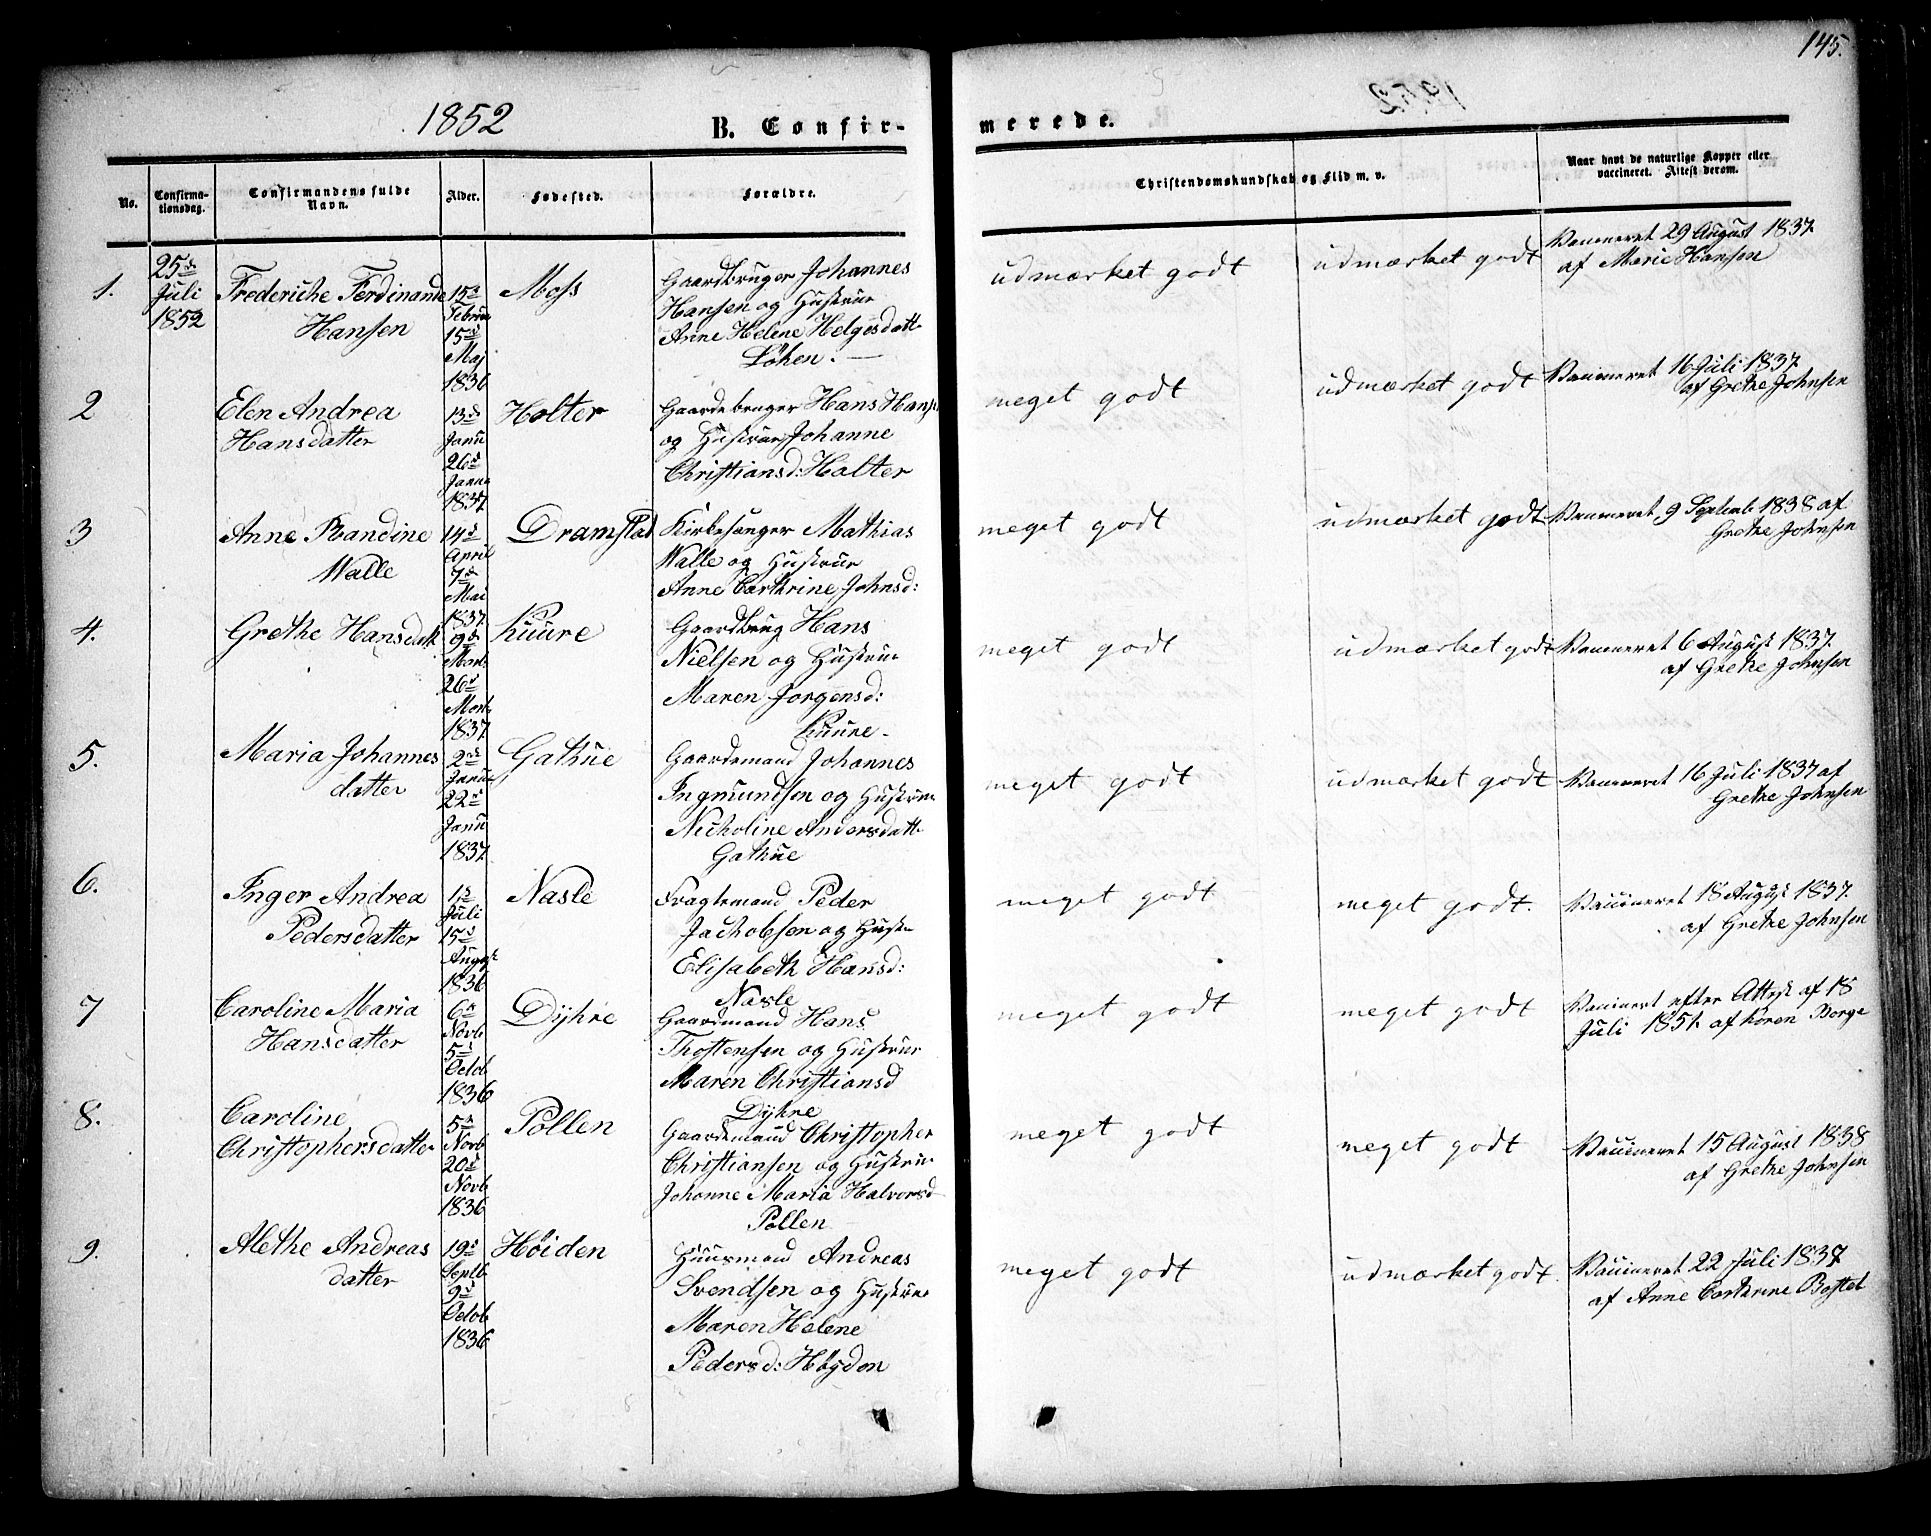 145.
1852
B. Confir-
merede.
No.
Confirma-
tionsdag.
Confirmandens fulde
Navn.
Alder.
Fødested.
Forældre.
Christendomskundskab og Flid m. v.
Naar havt de naturlige Kopper eller
vaccineret. Attest derom.
1.
25de
Juli
1852
Frederiche Ferdinande
Hansen
15de
Februar
15de
Maj
1836
Moss
Gaardbruger Johannes
Hansen og Hustrue
Anne Helene Helgesdatt
Løken.
udmærket godt
udmærket godt
Vaccineret 29 August 1837
af Marie Hansen
2
Elen Andrea
Hansdatter
13de
Janu
26de
Janua
1837
Holter
Gaardebruger Hans Hans
og Hustrue Johanne
Christiansd: Holter
meget godt
udmærket godt
Vaccineret 16 Juli 1837
af Grethe Johnsen
3
Anne Randine
Walle
14de
April
7de
Mai
1837
Dramstad
Kirkesanger Mathias
Walle og Hustrue
Anne Cathrine Johnsd:
meget godt
udmærket godt
Vaccineret 9 Septemb 1838 af
Grethe Johnsen
4.
Grethe Hansdatt
9de
Mart
26de
Mart
1837
Kuure
Gaardbrug Hans
Nielsen og Hustrue
Maren Jorgensd:
Kuure
meget godt
udmærket godt
Vaccineret 6 August 1837
af Grethe Johnsen
5.
Maria Johannes
datter
2de
Janua
22de
Janu
1837
Gathue
Gaardemand Johannes
Ingmundsen og Hustrue
Nicholine Andersdatt
Gathue
meget godt
udmærket godt
Vaccineret 16 Juli 1837 af
Grethe Johnsen
6.
Inger Andrea
Pedersdatter
1de
Juli
15de
August
1836
Nasle
Peder
Jachobsen og Hust
Elisabeth Hansd:
Nasle
meget godt
meget godt.
Vaccineret 18 August 1837
af Grethe Johnsen
7
Caroline Maria
Hansdatter
6de
Novb
5de
Octob
1836
Dyhre
Gaardmand Hans
Thostensen og Hustrue
Maren Christiansd
Dyhre
meget godt
meget godt
Vaccinert efter Attest af 18
Juli 1851 af Koren Borge
8.
Caroline
Christophersdatter
5de
Novb
20de
Novb
1836
Pollen
Gaardemand Christopher
Christiansen og Hustrue
Johanne Maria Halvorsd
Pollen
meget godt
meget godt
Vaccineret 15 August 1838
af Grethe Johnsen
9.
Alethe Andreas
datter
19de
Septb
9de
Octob
1836
Høiden
Huusmand Andreas
Svendsen og Hustrue
Maren Helene
Pedersd: Høyden
meget godt
udmærket godt.
Vaccineret 22 Juli 1837
af Anne Cartarine Bostel